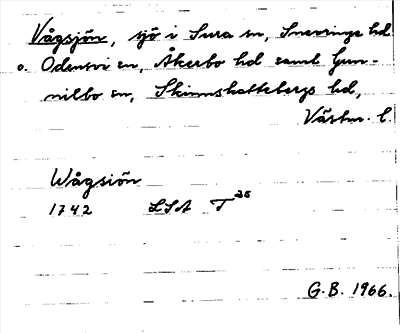 Vågsjön, sjö i Sura sn, Snevringe hd
o. Odensvi sn, Åkerbo hd samt Gun-
nilbo sn, Skinnskattebergs hd,
Västm. l.
Wågsiön
1742 LSA T 35
G.B. 1966.